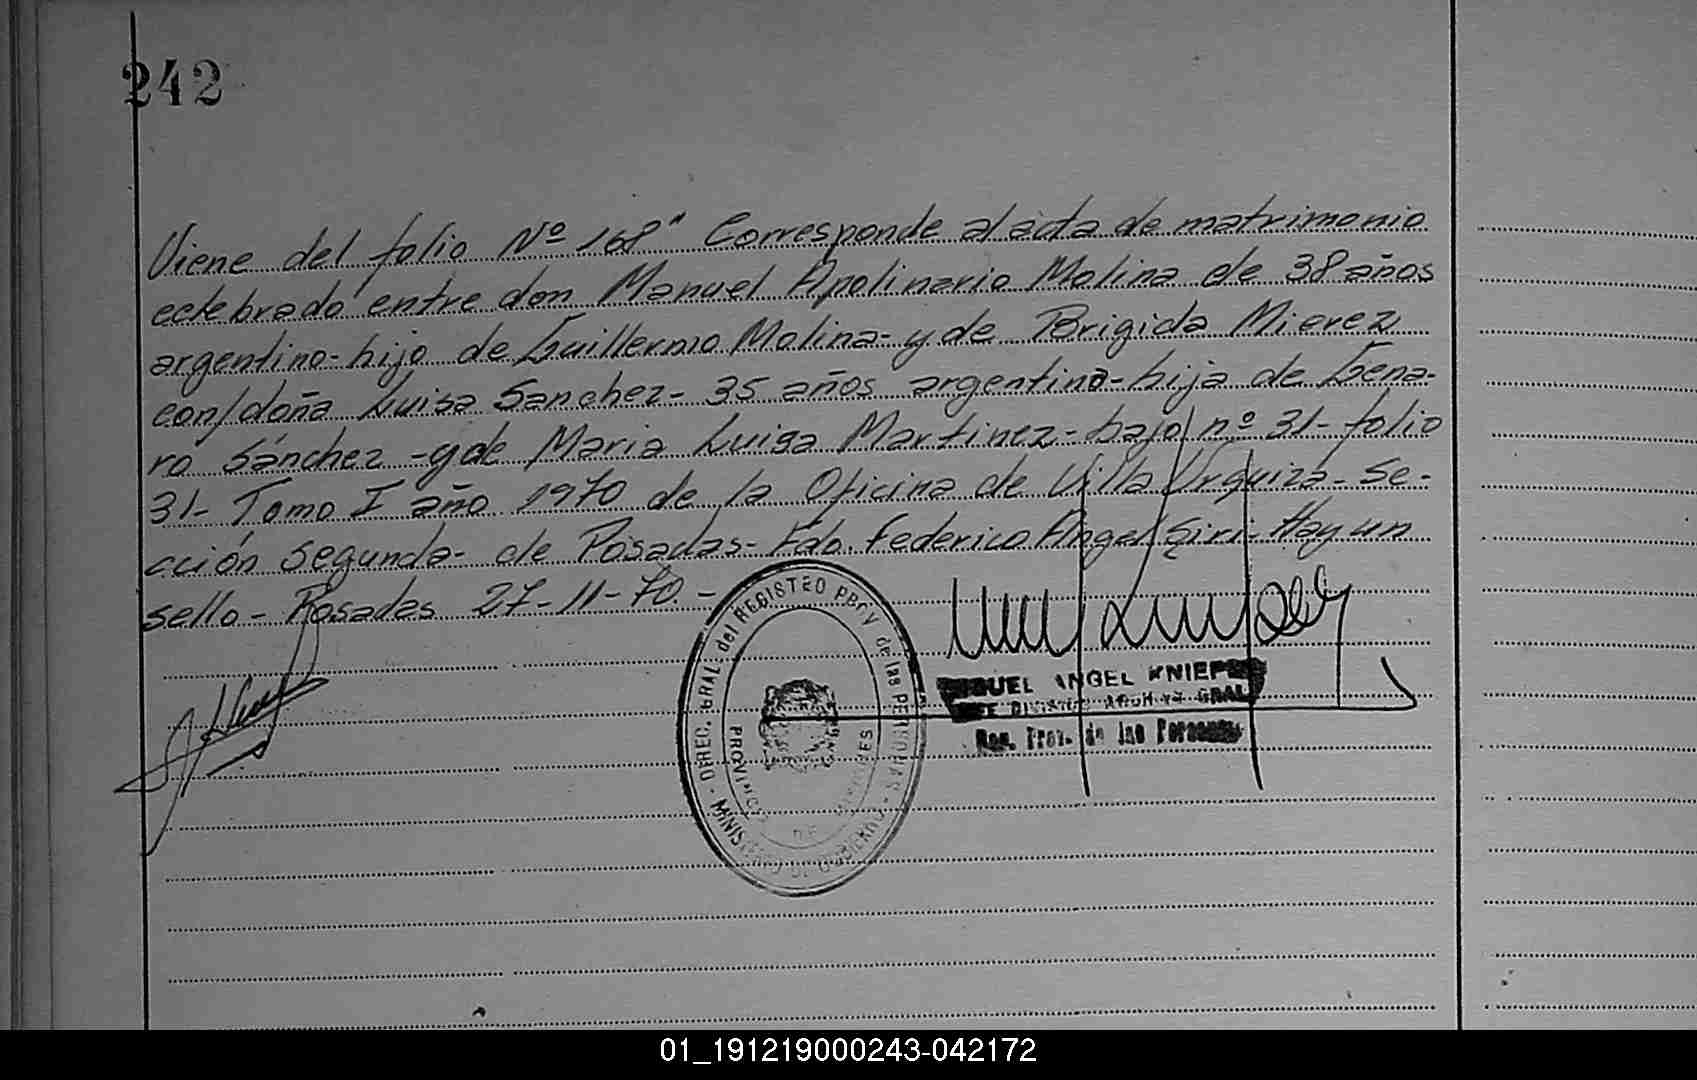 242
Viene del folio Nº 168" Corresponde al acta de matrimonio
celebrado entre don Manuel Apolinario Molina de 38 años
argentino- hijo de Guillermo Molina- y de Brigida Mierez
con/doña Luisa Sanchez- 35 años argentina- hija de Gena-
ro Sánchez - y de Maria Luisa Martinez- bajo nº 31- folio
31- Tomo I año 1970 de la Oficina de Villa Urquiza- Se-
cción Segunda- de Posadas- Fdo. Federico Angel Siri- Hay un
sello- Posadas 27-11-70.-
DIREC. GRAL. del REGISTRO PROV. de las PERSONAS
MINISTERIO DE GOBIERNO
PROVINCIA DE MISIONES
MIGUEL ANGEL KNIEP
JEFE DIVISION ARCHIVO GRAL
Reg. Prov. de las Personas
01_191219000243-042172